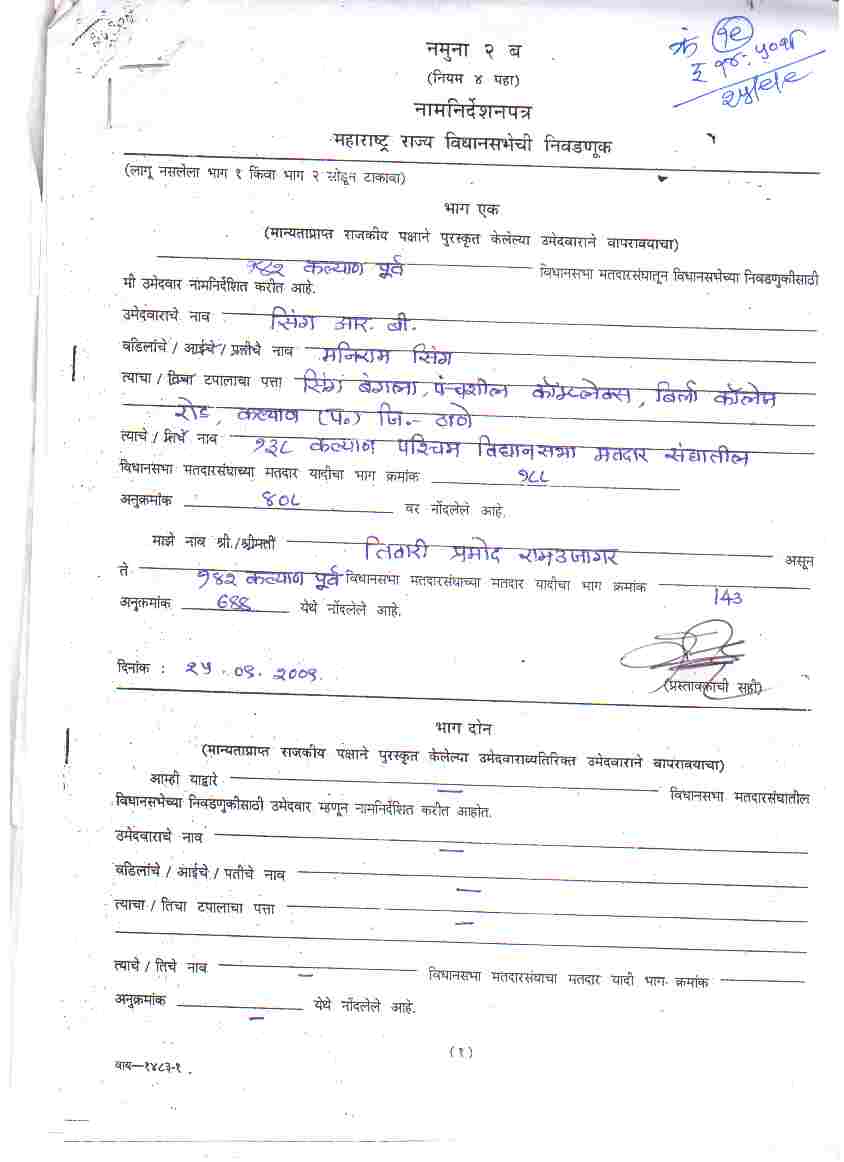 क्रं १९
नमुना २ ब
(नियम ४ पहा)
२५/९/९
नामनिर्देशनपत्र
महाराष्ट्र राज्य विधानसभेची निवडणूक
(लागू नसलेला भाग १ किंवा भाग २ सोडून टाकावा)
भाग एक
(मान्यताप्राप्त राजकीय पक्षाने पुरस्कृत केलेल्या उमेदवाराने वापरावयाचा)
१४२ कल्याण पूर्व विधानसभा मतदारसंघातून विधानसभेच्या निवडणुकीसाठी
मी उमेदवार नामनिर्देशित करीत आहे.
उमेदवाराचे नाव सिंग आर. बी.
वडिलांचे / आईचे / पतीचे नाव मनिराम सिंग
त्याचा / तिचा टपालाचा पत्ता सिंग बंगला, पंचशील कॉम्प्लेक्स, बिर्ला कॉलेज
रोड, कल्याण (प.) जि.- ठाणे
त्याचे / तिचे नाव १३८ कल्याण पश्चिम विधानसभा मतदार संघातील
विधानसभा मतदारसंघाच्या मतदार यादीचा भाग क्रमांक १८८
अनुक्रमांक ४०८ वर नोंदलेले आहे.
माझे नाव श्री./श्रीमती तिवारी प्रमोद रामउजागर असून
ते १४२ कल्याण पूर्व विधानसभा मतदारसंघाच्या मतदार यादीचा भाग क्रमांक 143
अनुक्रमांक 688 येथे नोंदलेले आहे.
दिनांक : २५.०९.२००९.
(प्रस्तावकाची सही)
भाग दोन
(मान्यताप्राप्त राजकीय पक्षाने पुरस्कृत केलेल्या उमेदवाराव्यतिरिक्त उमेदवाराने वापरावयाचा)
आम्ही याद्वारे — विधानसभा मतदारसंघातील
विधानसभेच्या निवडणुकीसाठी उमेदवार म्हणून नामनिर्देशित करीत आहोत.
उमेदवाराचे नाव —
वडिलांचे / आईचे / पतीचे नाव —
त्याचा / तिचा टपालाचा पत्ता —
त्याचे / तिचे नाव — विधानसभा मतदारसंघाचा मतदार यादी भाग क्रमांक
अनुक्रमांक — येथे नोंदलेले आहे.
(१)
वाय—१४८३-१.